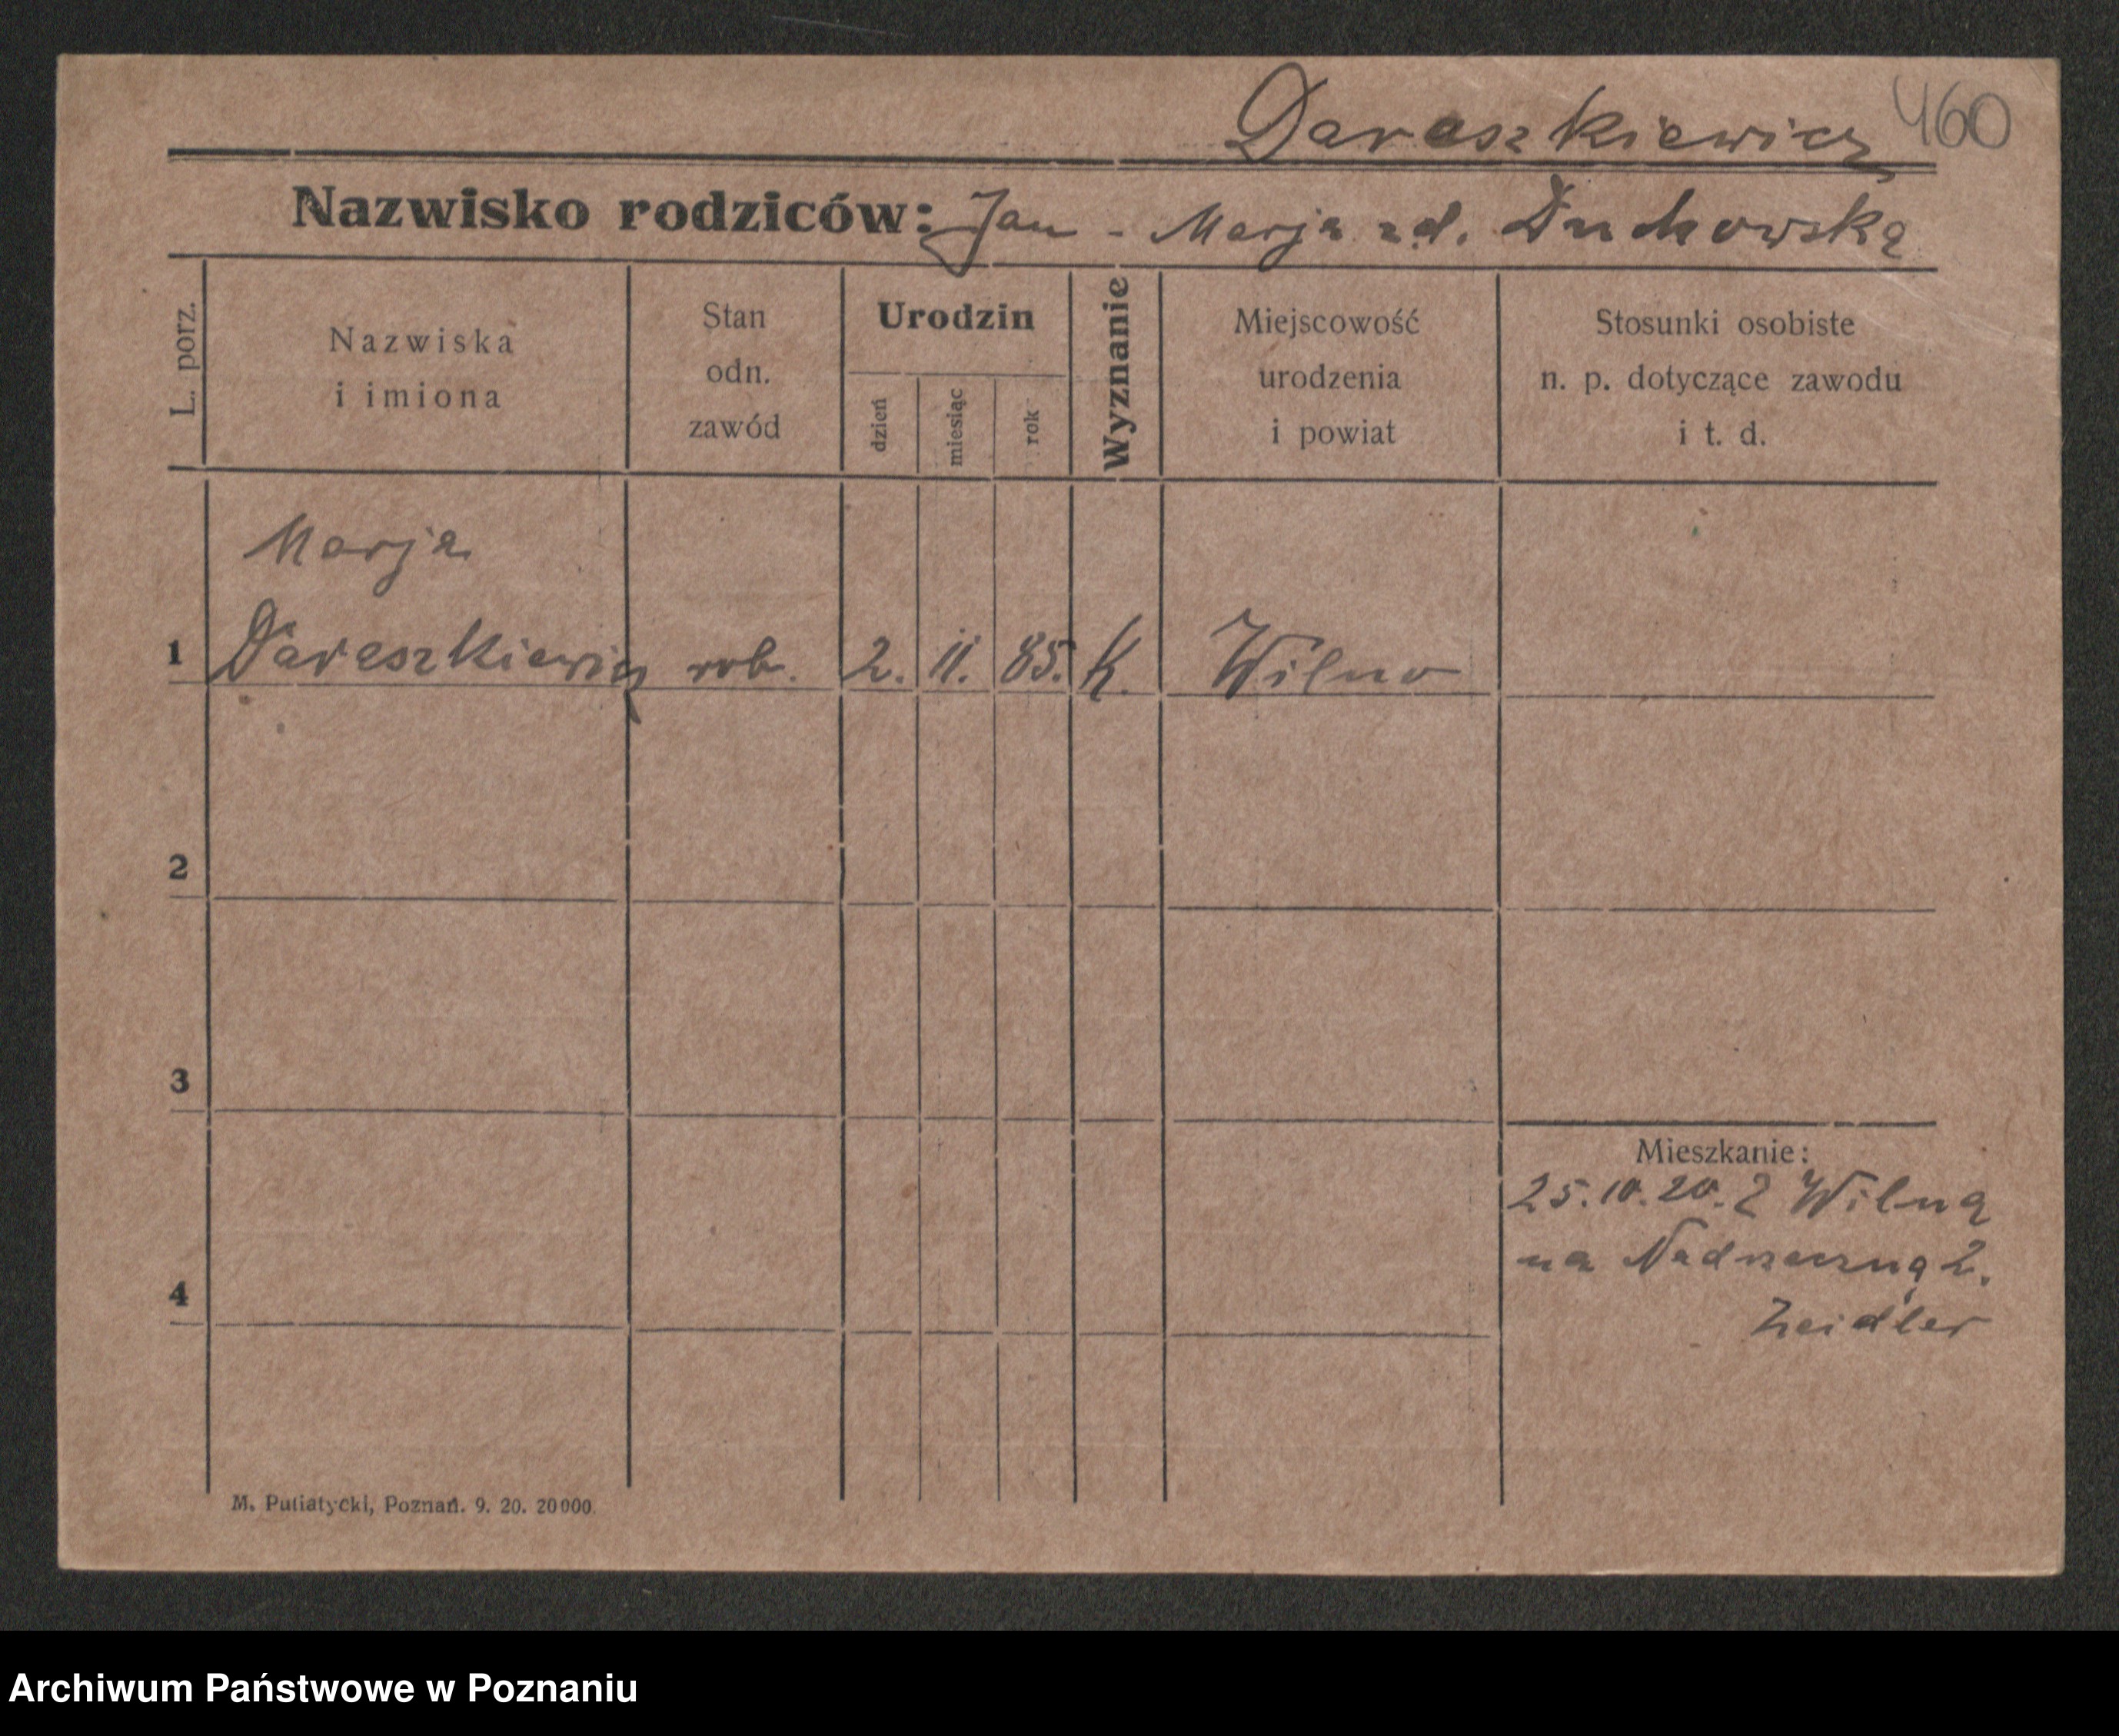 Dareszkiewicz 460
Nazwisko rodziców: Jan - Marja zd. Duchowska
L. porz.
Nazwiska
i imiona
Stan
odn.
zawód
Urodzin
dzień
miesiąc
rok
Wyznanie
Miejscowość
urodzenia
i powiat
Stosunki osobiste
n. p. dotyczące zawodu
i t. d.
Marja
1 Dareszkiewicz rob. 2. 11. 85. K. Wilno
2
3
4
Mieszkanie:
25.10.20. Z Wilna
na 2.
Zeidler
M. Putiatycki, Poznań. 9. 20. 20000.
Archiwum Państwowe w Poznaniu